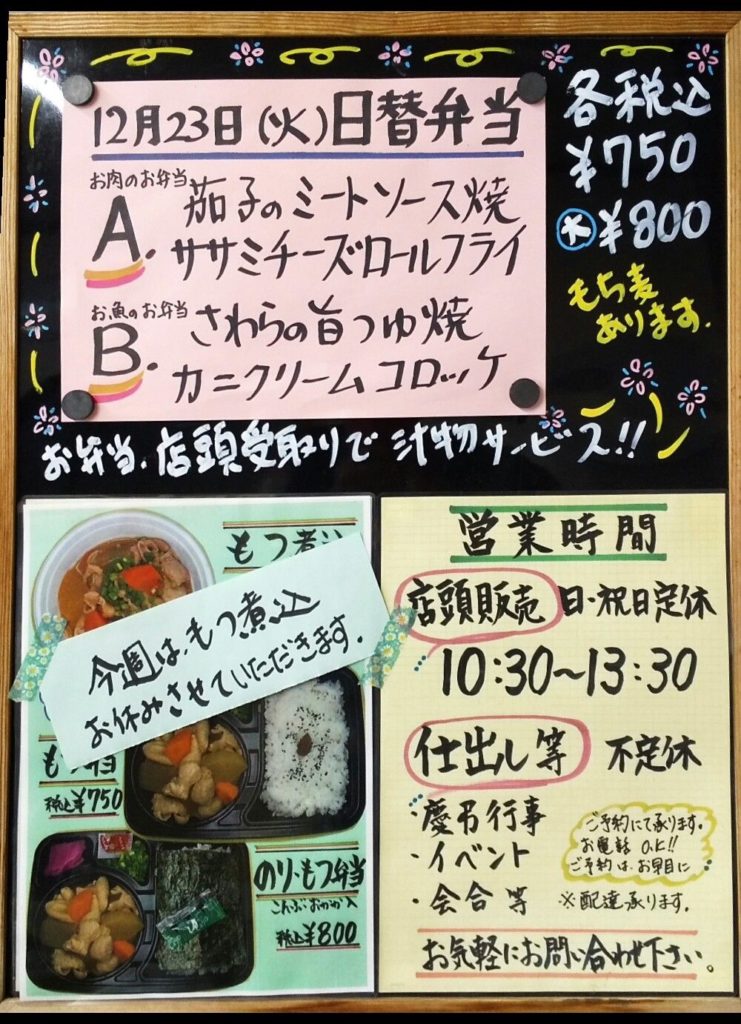 12月23日(火)日替弁当
お肉のお弁当
A. 茄子のミートソース焼
ササミチーズロールフライ
お魚のお弁当
B. さわらの旨つゆ焼
カニクリームコロッケ
各税込
¥750
大 ¥800
もち麦
あります.
お弁当、店頭受取りで 汁物サービス!!
もつ煮込
今週は、もつ煮込
お休みさせていただきます.
税込¥750
のり・もつ弁当
こんぶ・おかか入
税込¥800
営業時間
店頭販売 日・祝日定休
10:30〜13:30
仕出し等 不定休
・慶弔行事
・イベント
・会合等
ご予約にて承ります.
お電話 O.K!!
ご予約は、お早目に
※配達承ります.
お気軽にお問い合わせ下さい。